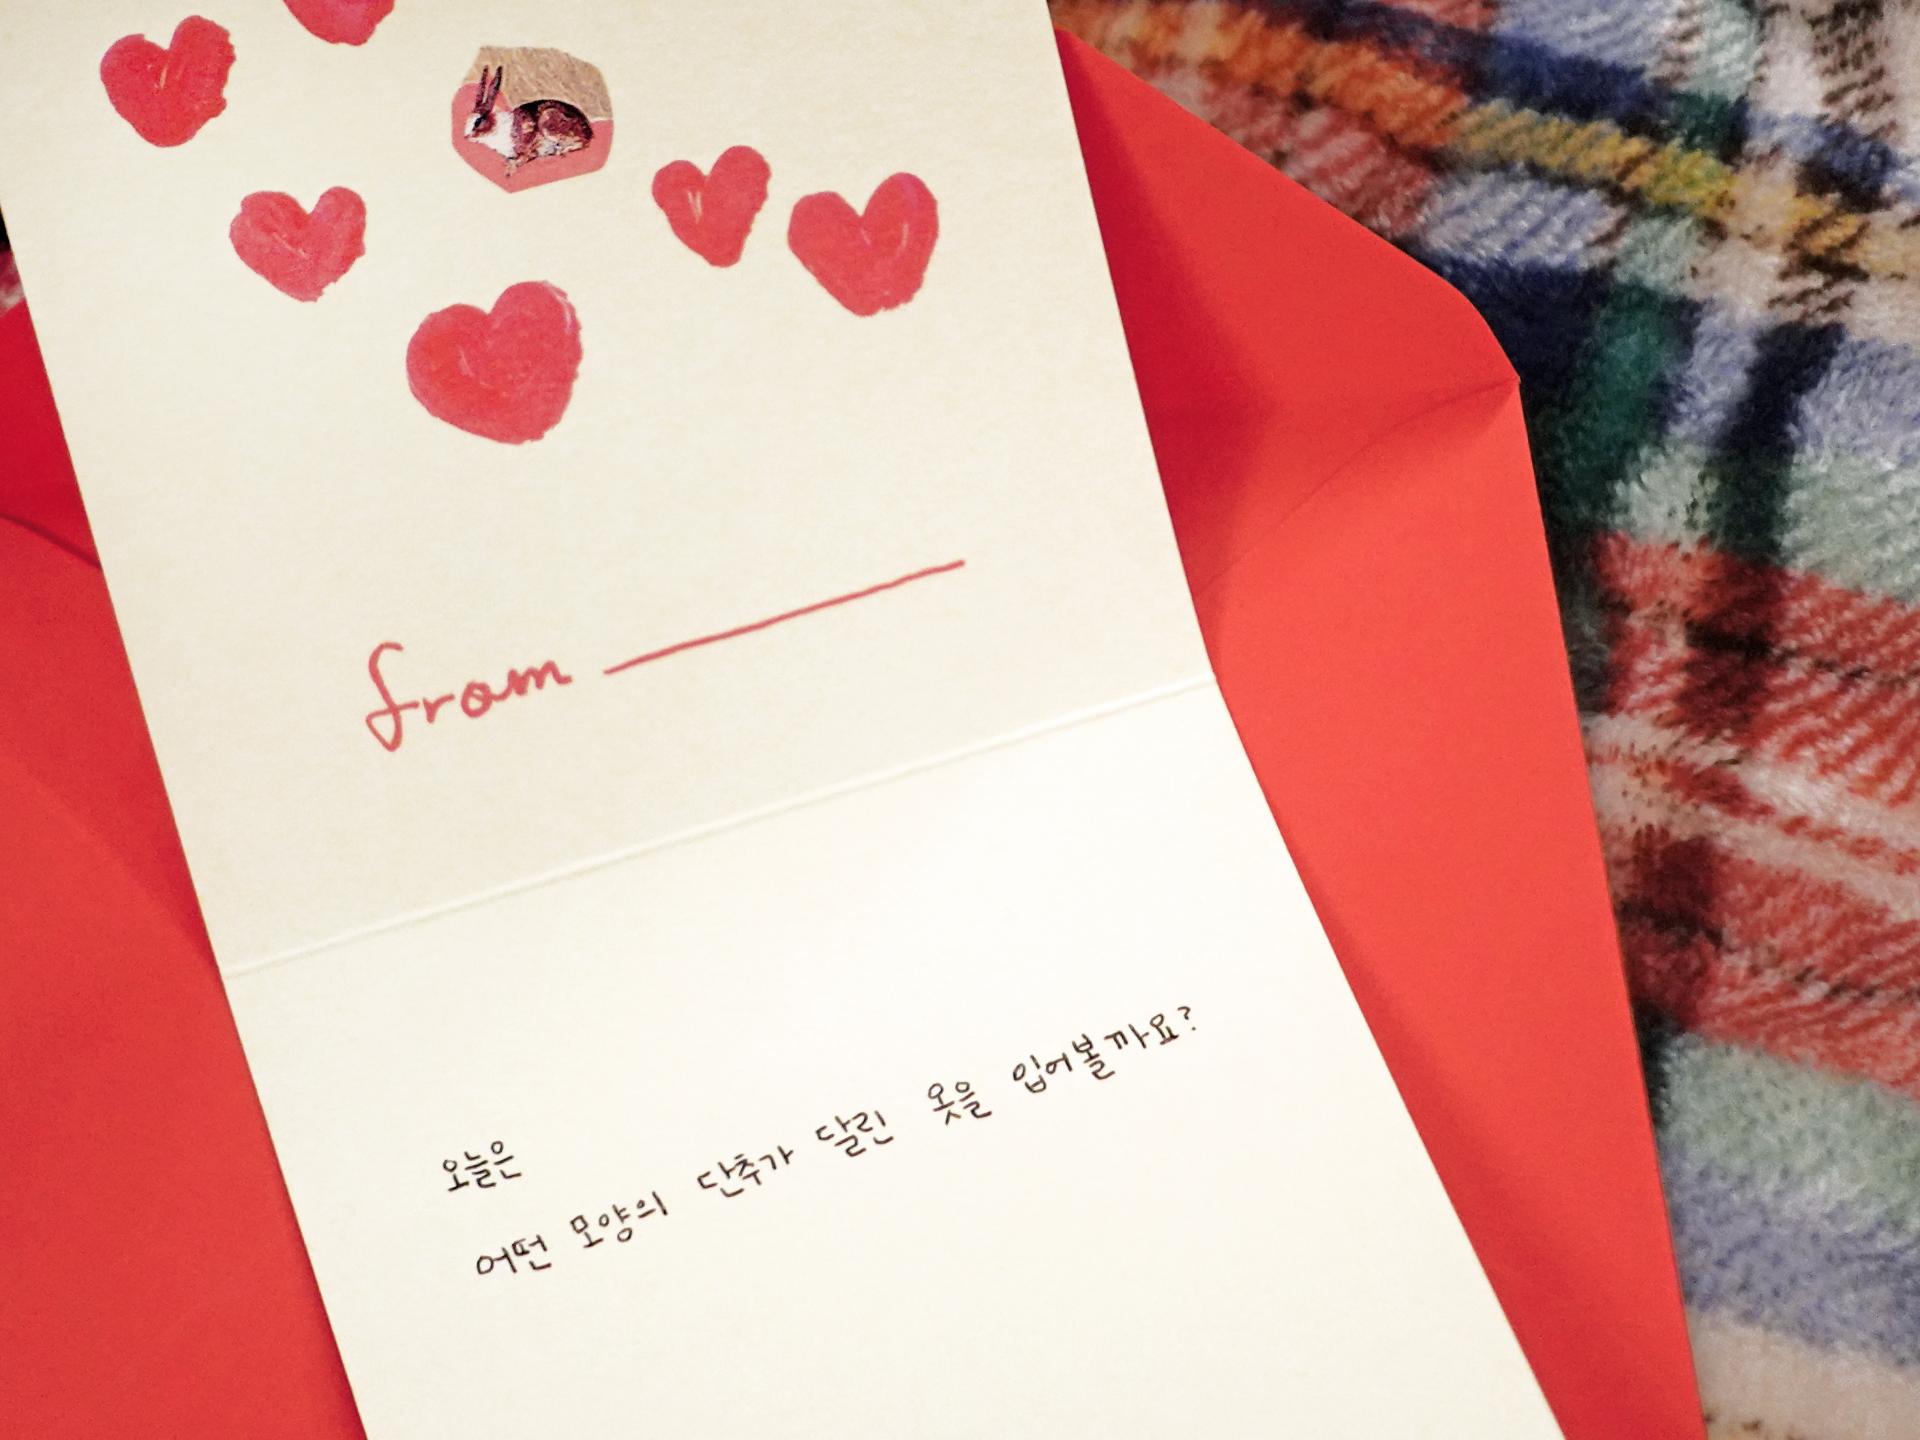 from
오늘은
어떤 모양의 단추가 달린 옷을 입어볼까요?